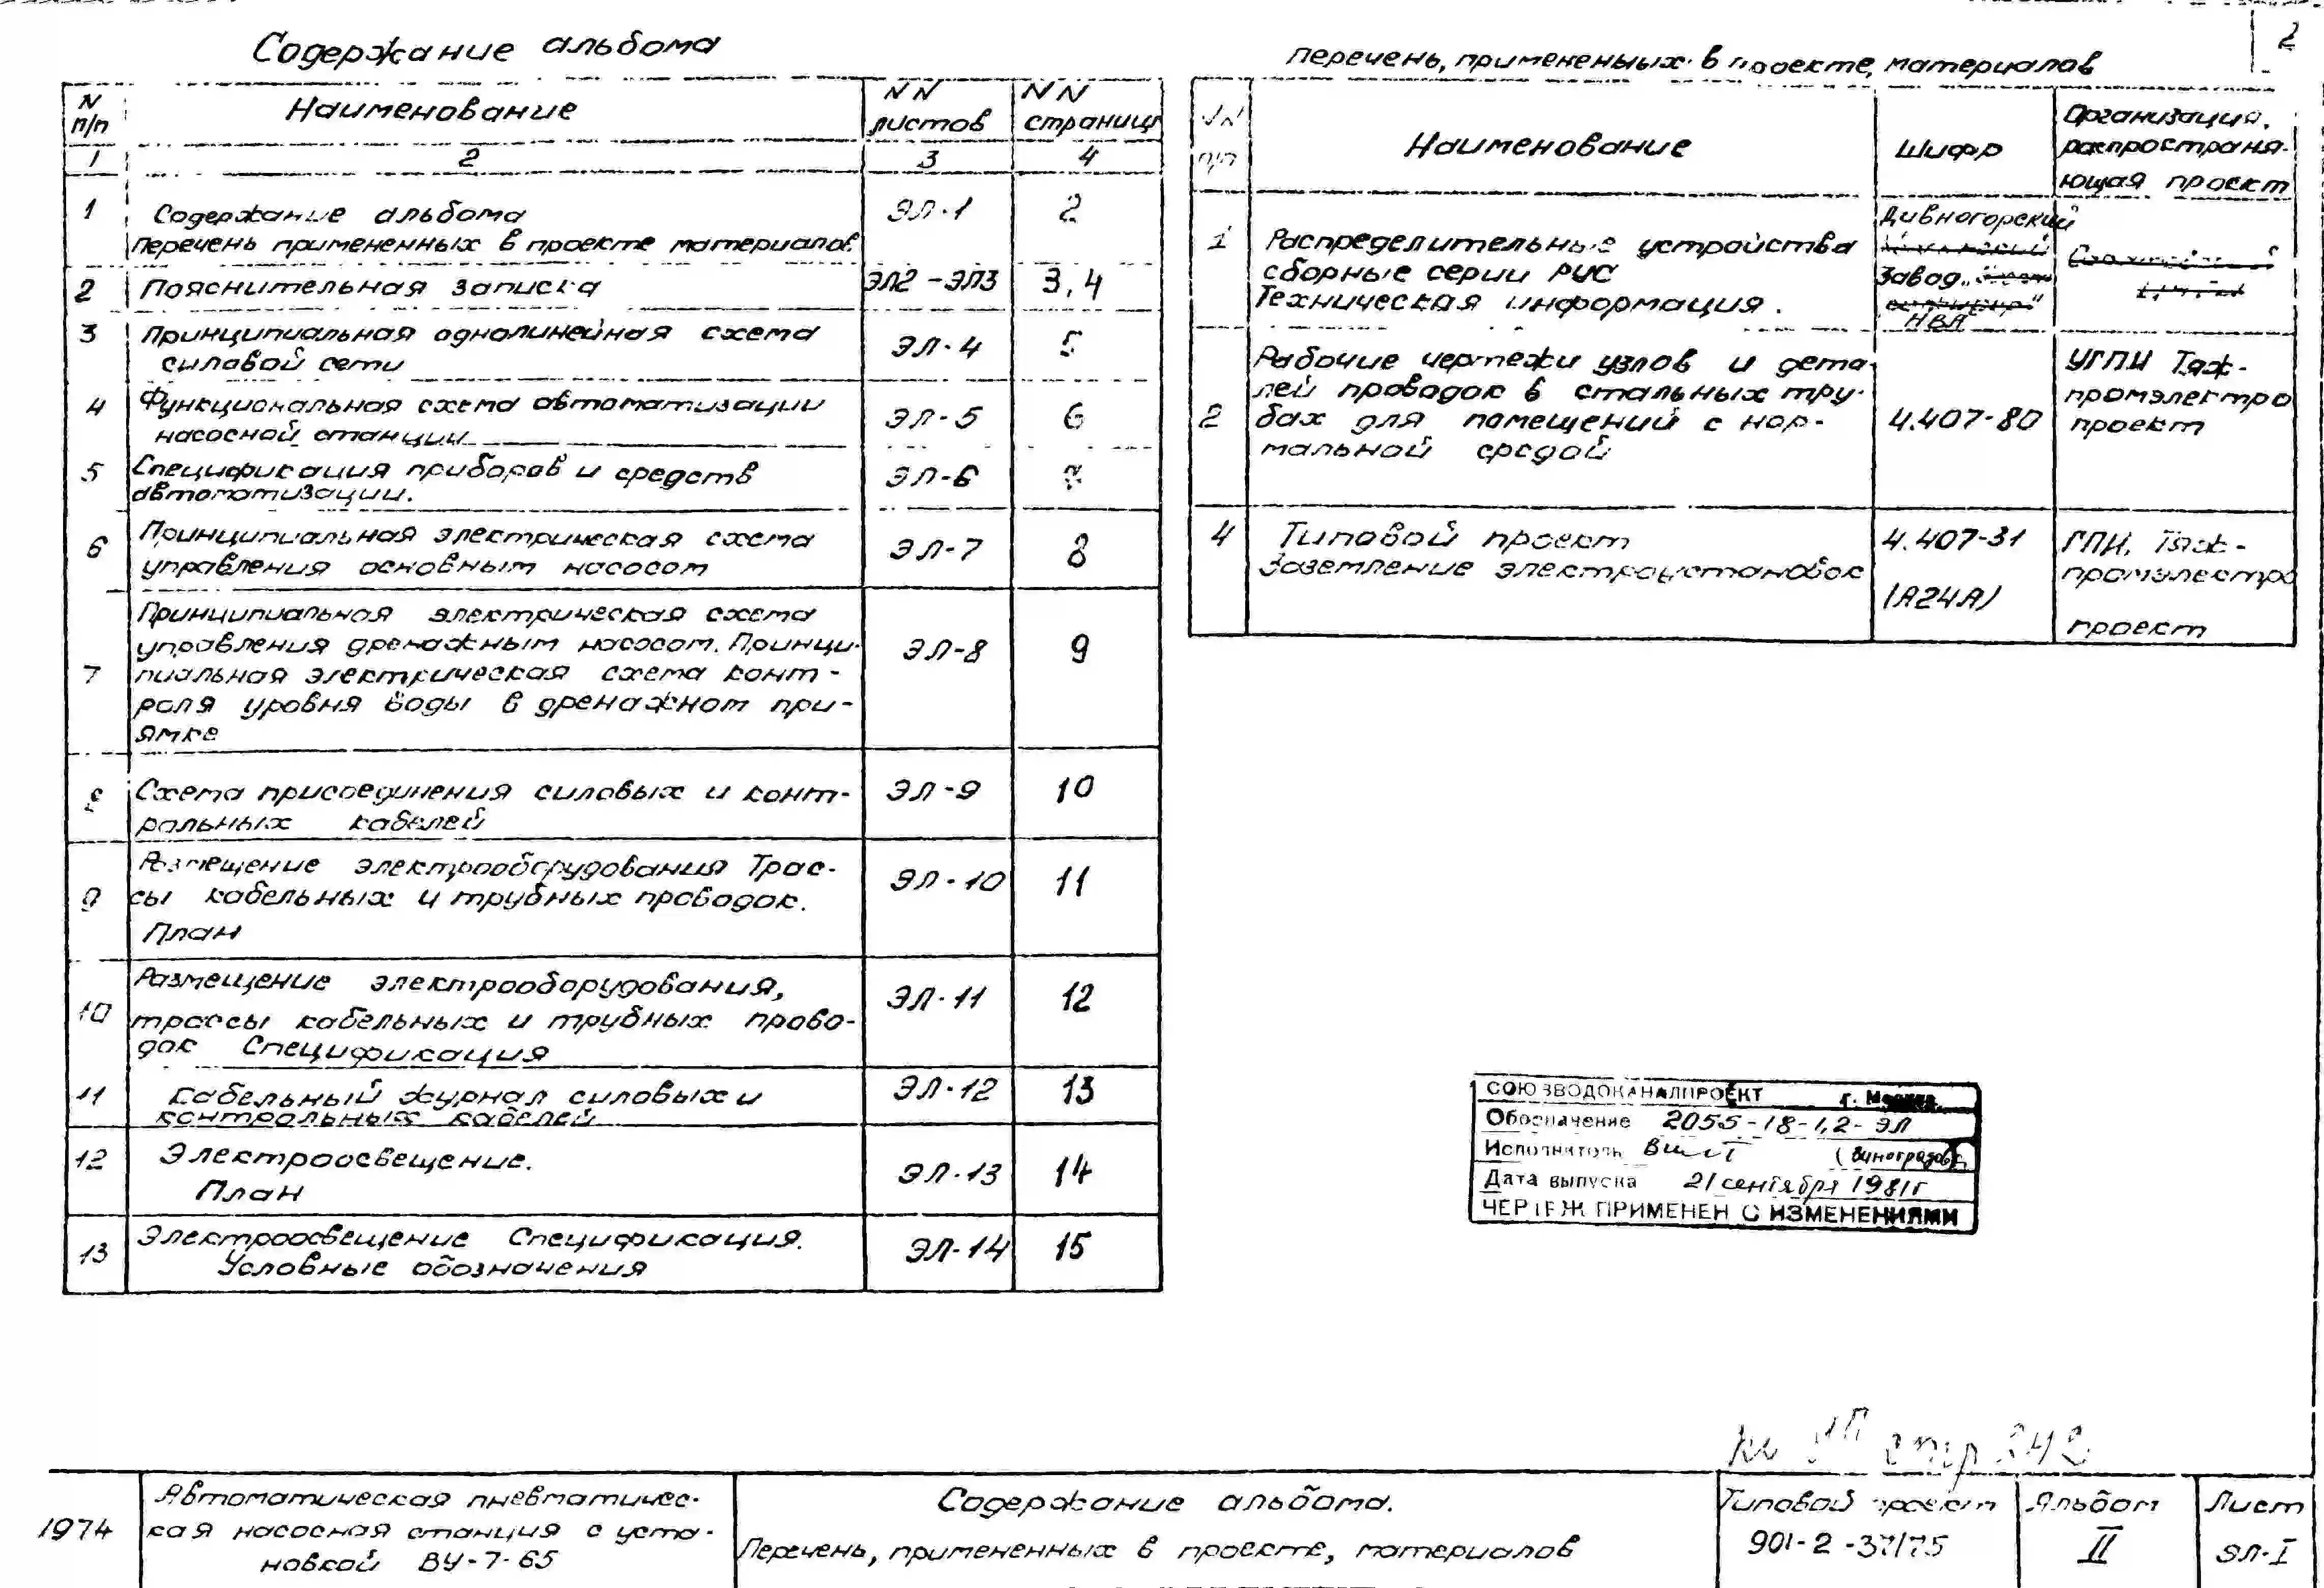 2
Содержание альбома
N п/п
Наименование
NN листов
NN страниц
1 2 3 4
1 Содержание альбома
Перечень примененных в проекте материалов ЭЛ-1 2
2 Пояснительная записка ЭЛ2-ЭЛ3 3,4
3 Принципиальная однолинейная схема
силовой сети ЭЛ-4 5
4 Функциональная схема автоматизации
насосной станции ЭЛ-5 6
5 Спецификация приборов и средств
автоматизации. ЭЛ-6
6 Принципиальная электрическая схема
управления основным насосом ЭЛ-7 8
Принципиальная электрическая схема
управления дренажным насосом. Принци-
7 пиальная электрическая схема конт-
роля уровня воды в дренажном при-
ямке ЭЛ-8 9
8 Схема присоединения силовых и конт-
рольных кабелей ЭЛ-9 10
Размещение электрооборудования Трас-
9 сы кабельных и трубных проводок.
План ЭЛ-10 11
Размещение электрооборудования,
10 трассы кабельных и трубных прово-
док Спецификация ЭЛ-11 12
11 Кабельный журнал силовых и
контрольных кабелей ЭЛ-12 13
12 Электроосвещение.
План ЭЛ-13 14
13 Электроосвещение Спецификация.
Условные обозначения ЭЛ-14 15
Перечень, примененных в проекте, материалов
NN п/п
Наименование
Шифр
Организация,
распространя-
ющая проект
1 Распределительные устройства
сборные серии РУС
Техническая информация.
Дивногорский
завод
НВА
Рабочие чертежи узлов и дета-
лей проводок в стальных тру-
2 бах для помещений с нор-
мальной средой
4.407-80
УГПИ Тяж-
промэлектро
проект
4 Типовой проект
Заземление электроустановок
4.407-31
(А24А)
ГПИ, Тяж-
промэлектро
проект
СОЮЗВОДОКАНАЛПРОЕКТ г. Москва
Обозначение 2055-18-1,2-ЭЛ
Исполнитель
Дата выпуска 21 сентября 1981г
ЧЕРТЕЖ ПРИМЕНЕН С ИЗМЕНЕНИЯМИ
1974
Автоматическая пневматичес-
кая насосная станция с уста-
новкой ВУ-7-65
Содержание альбома.
Перечень, примененных в проекте, материалов
Типовой проект
901-2-37/75
Альбом
II
Лист
ЭЛ-I